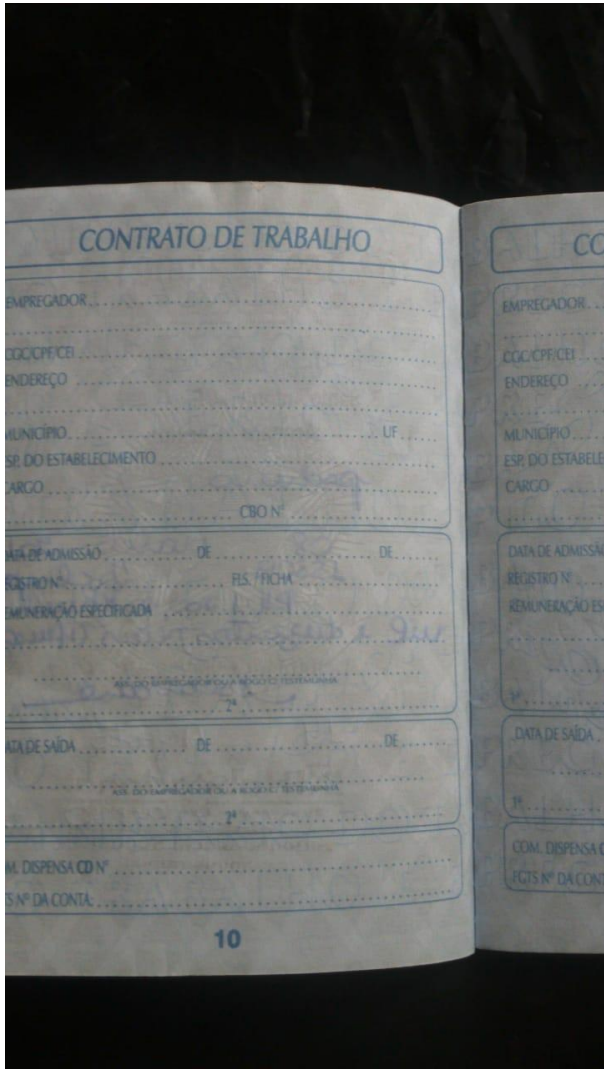 CONTRATO DE TRABALHO
EMPREGADOR
CGC/CPF/CEI
ENDEREÇO
MUNICÍPIO UF
ESP. DO ESTABELECIMENTO
CARGO
CBO Nº
DATA DE ADMISSÃO DE DE
REGISTRO Nº FLS. / FICHA
REMUNERAÇÃO ESPECIFICADA
ASS. DO EMPREGADOR OU A ROGO C/ TESTEMUNHA
2ª
DATA DE SAÍDA DE DE
ASS. DO EMPREGADOR OU A ROGO C/ TESTEMUNHA
2ª
OM. DISPENSA CD Nº
TS Nº DA CONTA:
10
CO
EMPREGADOR
CGC/CPF/CEI
ENDEREÇO
MUNICÍPIO
ESP. DO ESTABELE
CARGO
DATA DE ADMISSÃO
REGISTRO Nº
REMUNERAÇÃO ES
1ª
DATA DE SAÍDA
1ª
COM. DISPENSA C
FGTS Nº DA CONT